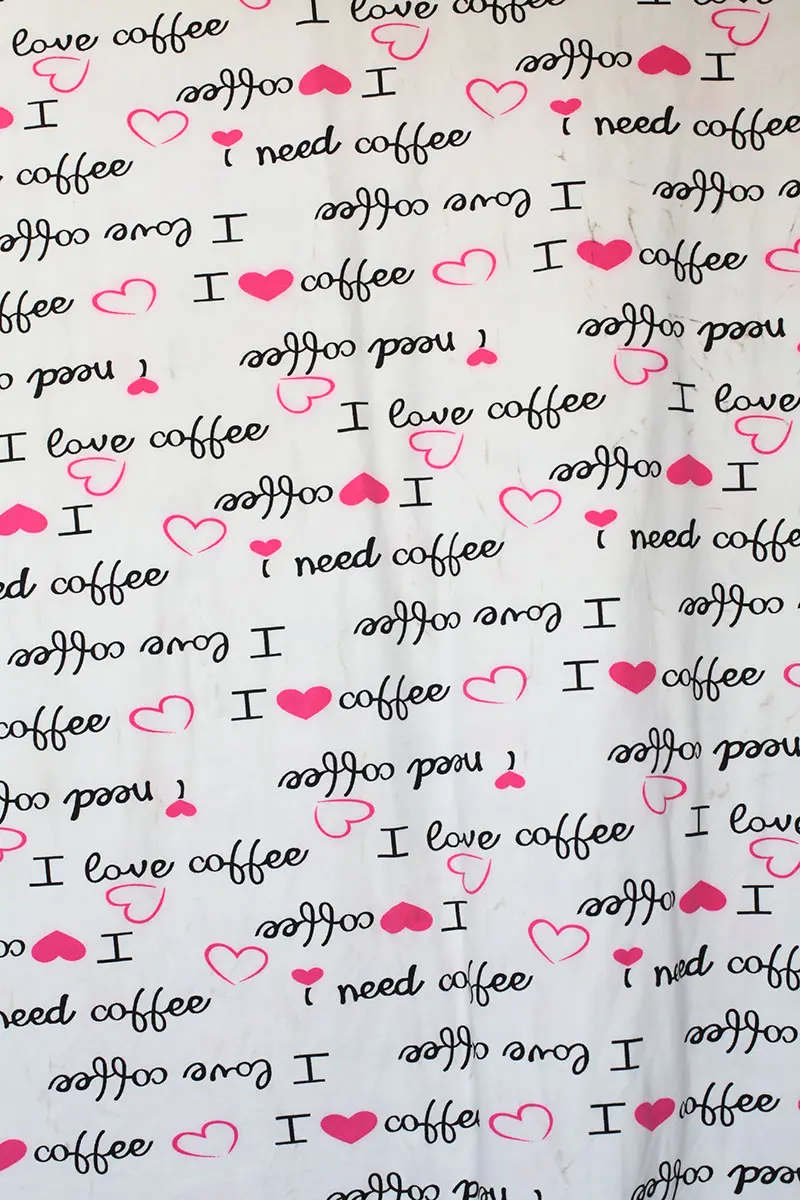 I love coffee
love coffee
coffee I
coffee I
I
i need coffee
i coffee
coffee
I love coffee
coffee
I love coffee
I coffee
I coffee
need coffee
i need coffee
i need
I love coffee
I love
I love coffee
coffee I
coffee I
I
i need coffee
i need
coffee
I love coffee
coffee
I love coffee
I coffee
I coffee
coffee
need coffee
i need coffee
i need
I love coffee
I love
I love coffee
coffee I
coffee I
I
i need coffee
i need
need coffee
coffee
I love coffee
I love coffee
I coffee
I coffee
coffee
need coffee
i need coffee